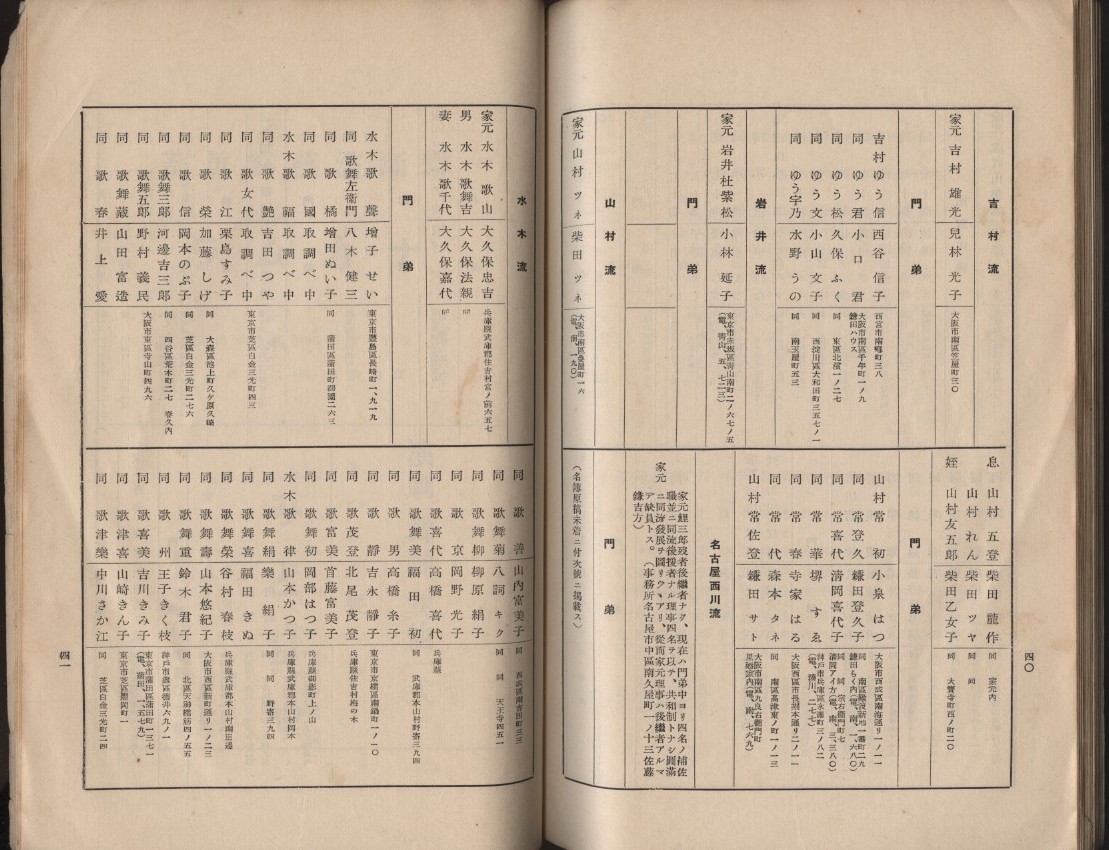 吉村流
家元 吉村雄光 兒林光子 大阪市南區笠屋町三〇
門弟
吉村ゆう信 西谷信子 西宮市南郷町三八
同 ゆう君 小口君 大阪市南區千年町一ノ九 鎌田ハウス
同 ゆう松 久保ふく 同 東區北濱一ノ二七
同 ゆう文 小山文子 同 西淀川區大和田町三五七ノ一
同 ゆう宇乃 水野うの 同 南玉屋町五三
岩井流
家元 岩井杜紫松 小林延子 東京市赤坂區青山南町二ノ六七ノ五 (電、青山、五、七二三)
門弟
山村流
家元 山村ツネ 柴田ツネ 大阪市南區疊屋町一六 (電、南、一九〇)
息 山村五登 柴田龍作 同 家元内
山村れん 柴田ツヤ 同 同
姪 山村友五郎 柴田乙女子 同 大寶寺町西ノ町二〇
門弟
山村常初 小泉はつ 大阪市西成區南海通リ一ノ一一
同 登久 鎌田登久子 同 南區難波新地一番町二九 鎌田らく内(電、南、一、六八〇)
同 常喜代 清岡喜代子 同 同 宗右衞門町七 清岡アイ方(電、南、三、三八〇)
同 常華 堺すゑ 神戸市兵庫區永澤町三ノ八二 (電、湊川、二七七)
同 常春 寺家はる 大阪市西區市長堀本通リ二ノ一一
同 常代 森本タネ 同 南區高津東ノ町一ノ一三
山村常佐登 鎌田サト 大阪市南區九良右衞門町
名古屋西川流
家元 家元鯉三郎歿者後繼者ナク、現在ハ門弟中ヨリ四名ノ補佐
職並ニ同流後援者ナル理事四名ヲ以テ、共和制トナシ圓滿
ニ同流發展ヲ圖リツヽアリ、從而家元理事ハ後繼者アルマ
デ缺員トス。(事務所名古屋市中區南久屋町一ノ十三佐藤
鎌吉方)
門弟
(名簿原稿未着ニ付次號ニ掲載ス)
四〇
水木流
家元 水木歌山 大久保忠吉 兵庫縣武庫郡住吉村宮ノ前六五七
男 水木歌舞吉 大久保法親 同
妻 水木歌千代 大久保嘉代 同
門弟
水木歌聲 增子せい 東京市豊島區長崎町一、九一九
同 歌舞左衞門 八木健三
同 歌橘 增田ぬい子 同 蒲田區蒲田町御園二六三
同 歌國 取調べ中
水木歌福 取調べ中
同 歌艶 吉田つや
同 歌女代 取調べ中 東京市芝區白金三光町四三
同 歌江 栗島すみ子
同 歌榮 加藤しげ 同 大森區池上町久ケ原久崎
同 歌信 岡本のぶ子 同 芝區白金三光町二七六
同 歌舞三郎 河邊吉三郎 同 四谷區荒木町二七 春久内
同 歌舞五郎 野村義民 大阪市東區寺山町四九六
同 歌舞藏 山田富造
同 歌春 井上愛
同 歌善 山内富美子 同 西成區南吉田町三三
同 歌舞菊 八詞キク 同 同 天王寺四五一
同 歌舞柳 柳原絹子
同 歌京 岡野光子
同 歌喜代 高橋喜代 兵庫縣
同 歌美 福田初 同 武庫郡本山村野寄三九四
同 歌男 高橋糸子
同 歌靜 吉永靜子 東京市京橋區南鍋町一ノ一〇
同 歌茂登 北尾茂登 兵庫縣住吉村梅の木
同 歌富美 首藤富美子
同 歌舞初 岡部はつ子 兵庫縣御影町上ノ山
水木歌律 山本かつ子 兵庫縣武庫郡本山村岡本
同 歌舞絹 樂絹子
同 歌舞喜 福田きぬ 同 同 野寄三九四
同 歌舞榮 谷村春枝 兵庫縣武庫郡本山村
同 歌舞壽 山本悠紀子 大阪市西區新町通リ一ノ二三
同 歌舞重 鈴木君子 同 北區天神橋筋四ノ五五
同 歌州 王子きく枝 神戸市
同 歌喜美 吉川きみ子 東京市蒲田區蒲田町一三七一 (電、蒲田、一、五七九)
同 歌津喜 山崎きん子 東京市芝區 岡町一
同 歌津樂 中川さか江 同 芝區白金三光町二四
四一